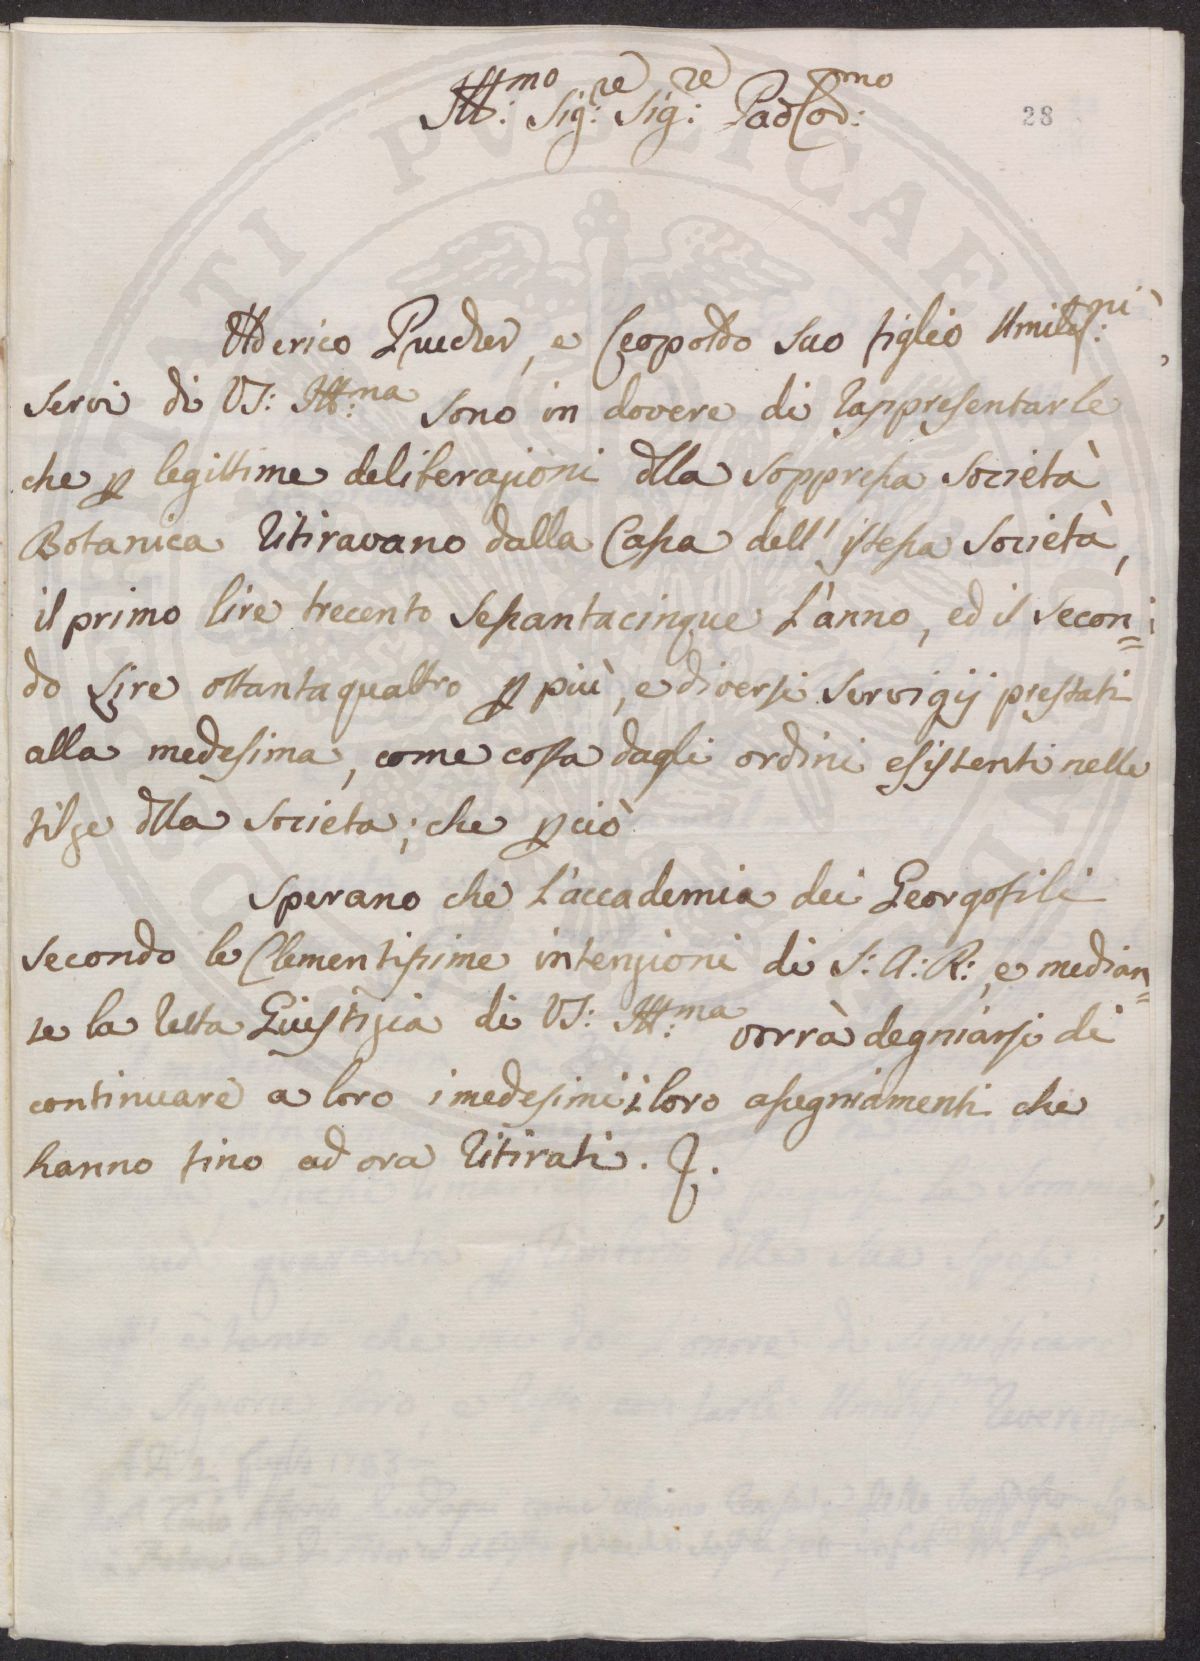 Ill:mo Sig:re Sig:re Pad: Col:mo
28
Ulderico Prucker, e Leopoldo suo figlio Umiliss:mi
servi di VS: Ill:ma sono in dovere di rappresentarle
che p legittime deliberazioni dlla soppressa società
Botanica ritiravano dalla Cassa dell' istessa società,
il primo lire trecento sessantacinque l'anno, ed il secon=
do lire ottantaquattro p più, e diversi servigij prestati
alla medesima, come costa dagli ordini esistenti nelle
filze dlla societa; che pciò
Sperano che l'accademia dei Georgofili
secondo le Clementissime intenzioni di S: A: R:, e median=
te la retta Giustizia di VS: Ill:ma vorrà degniarsi di
continuare a loro i medesimi i loro assegniamenti che
hanno fino ad ora ritirati.